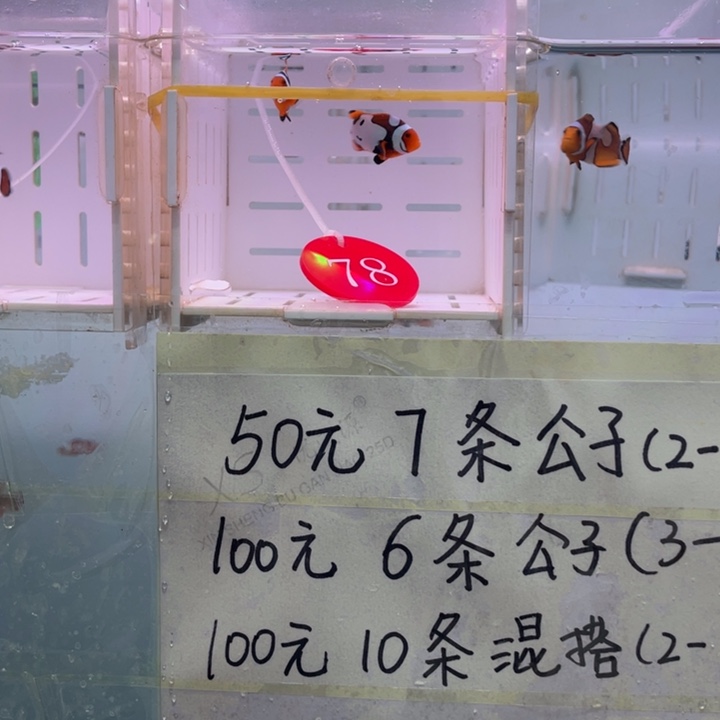 78
50元 7条公子(2-
100元 6条公子(3-
100元 10条混搭(2-